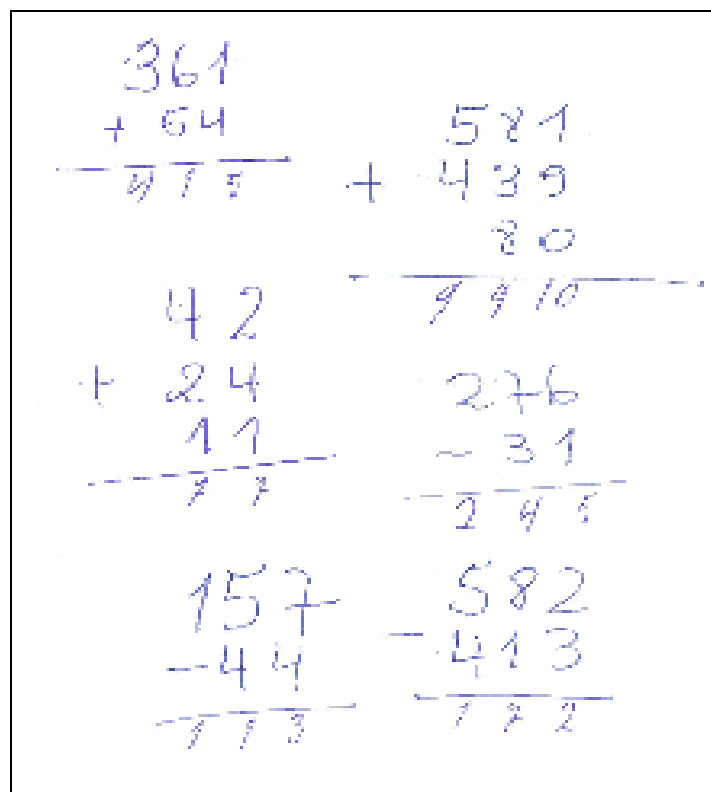 361
+ 54
415
581
+ 439
80
9 9 10
42
+ 24
11
77
276
- 31
245
157
- 44
113
582
- 413
172